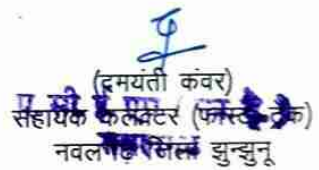 (दमयंती कंवर)
सहायक कलेक्टर (फास्ट ट्रेक)
नवलगढ़ जिला झुन्झुनू